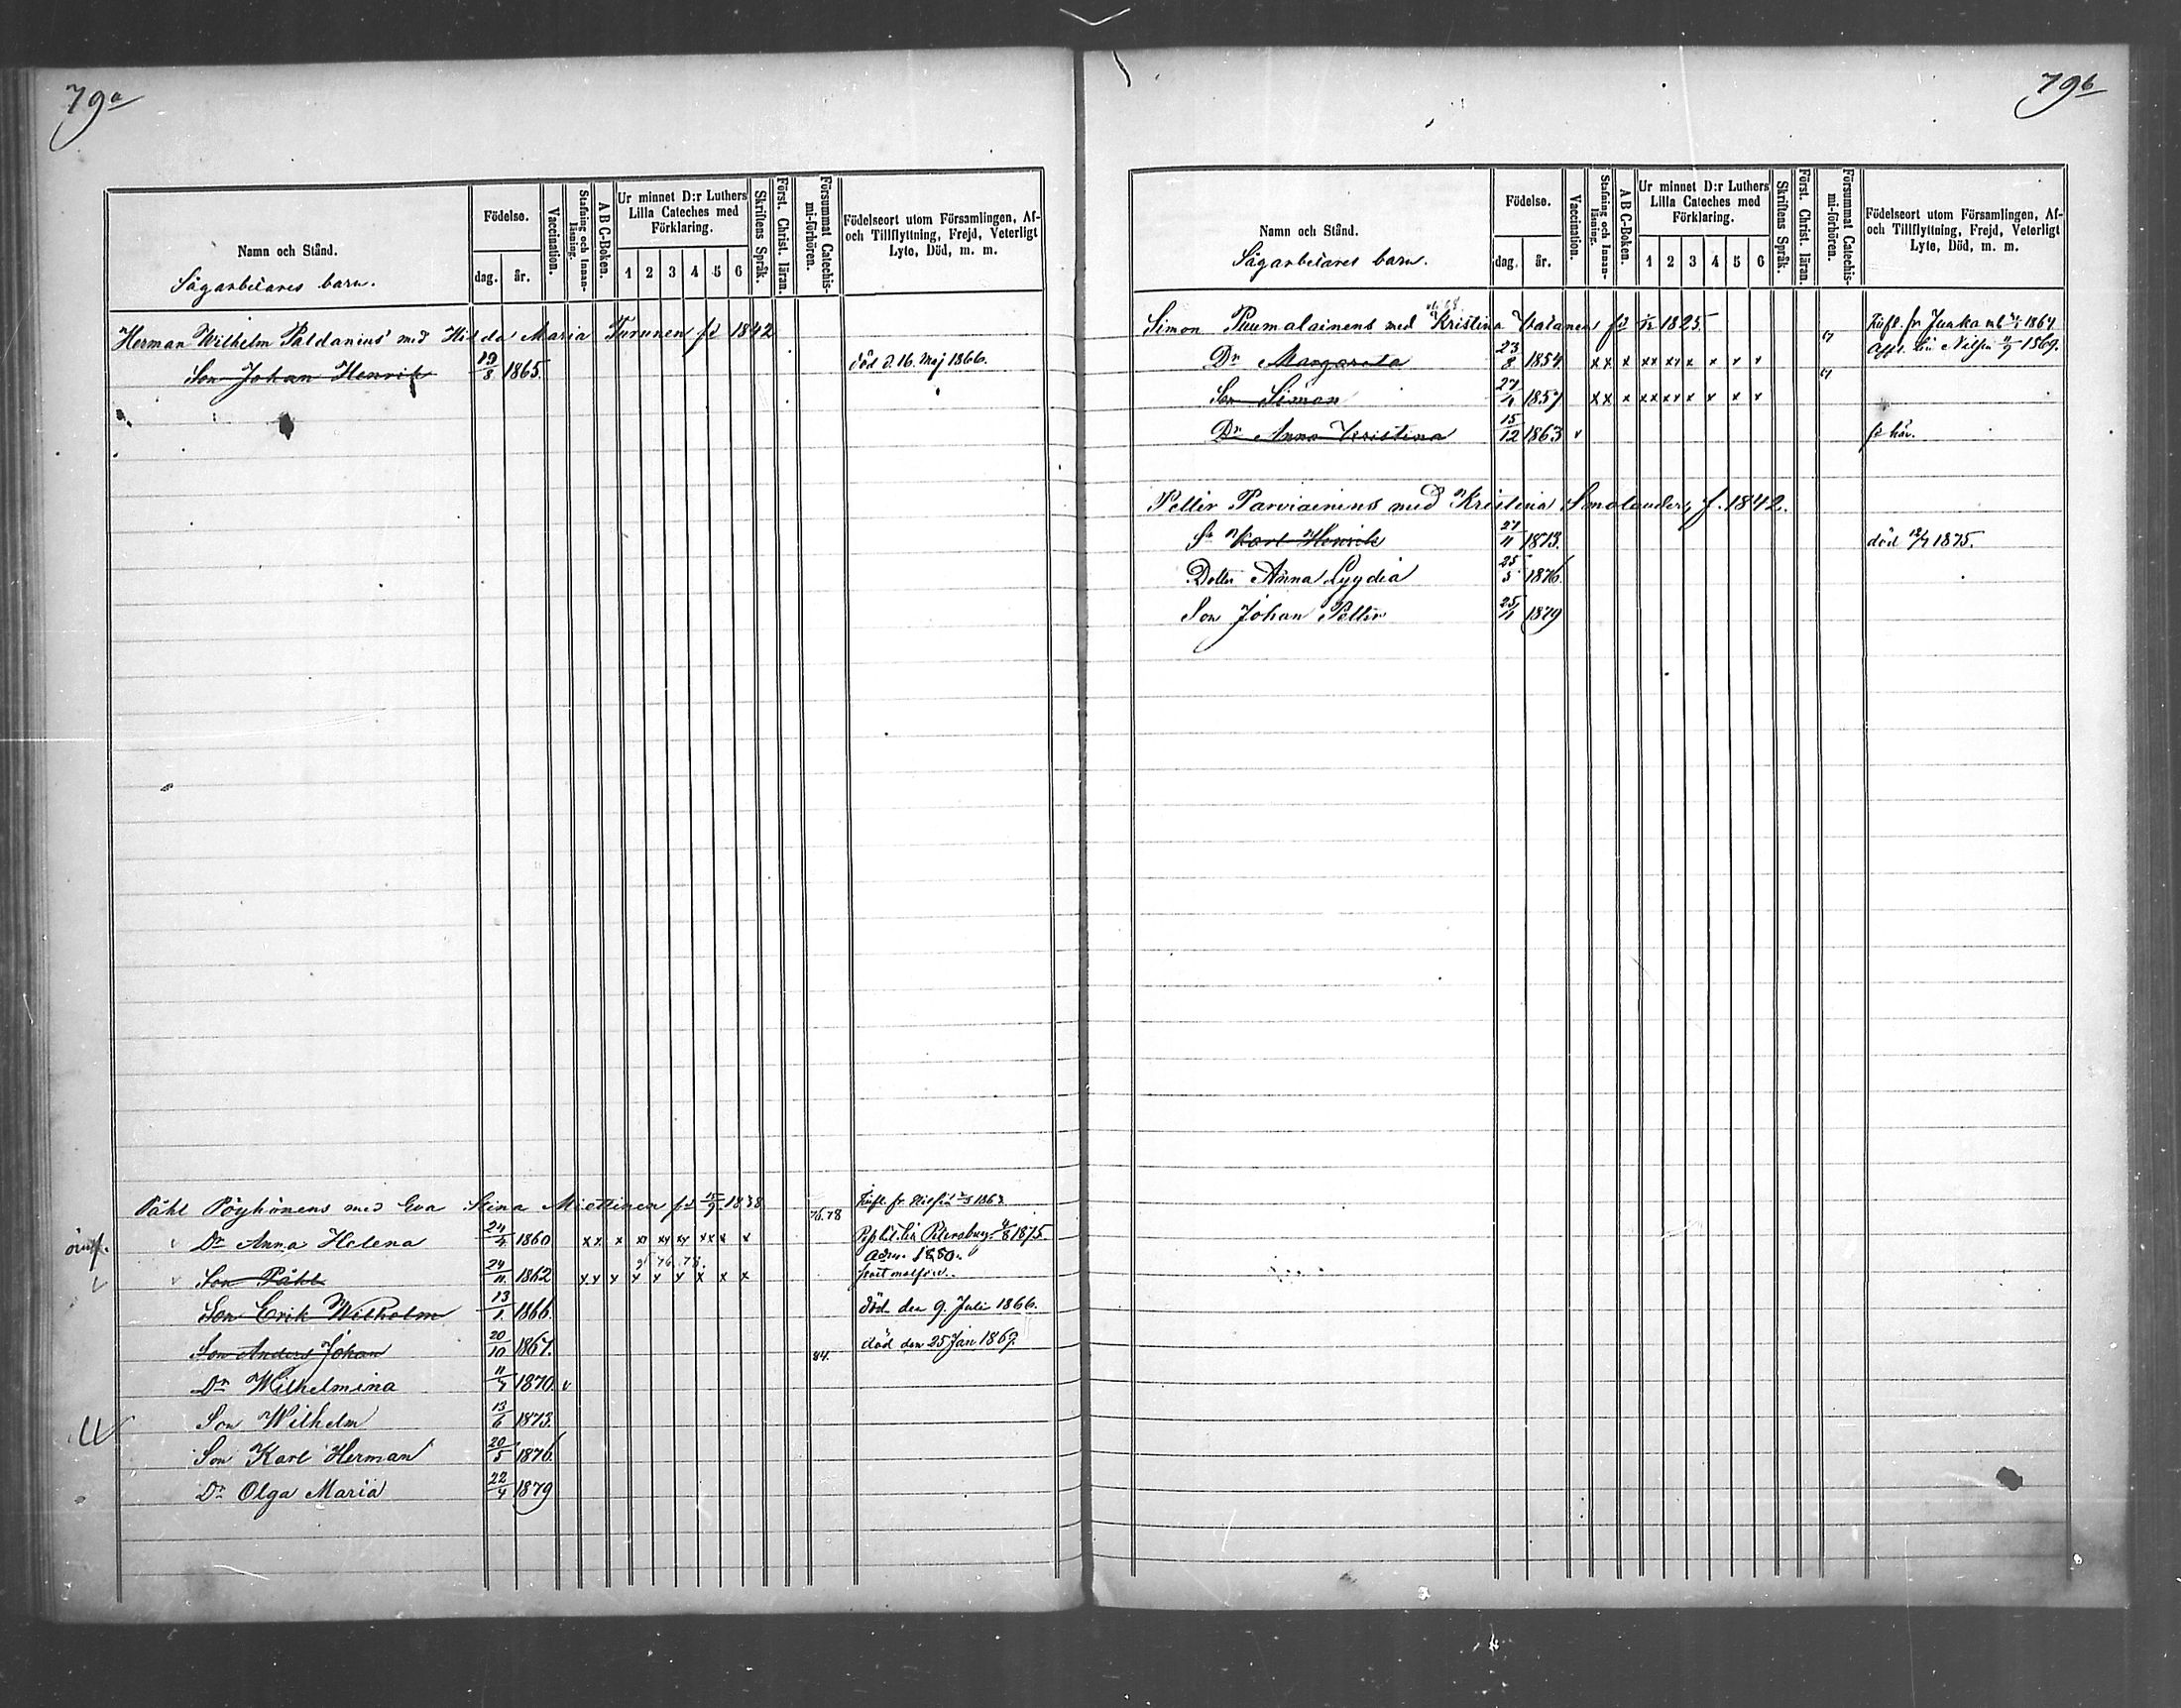 79a
Namn och Stånd.
Sågarbetares barn.
Födelse.
dag. år.
Vaccination.
Stafning och Innanläsning.
A B C-Boken.
Ur minnet D:r Luthers Lilla Cateches med Förklaring.
1 2 3 4 5 6
Skriftens Språk.
Först. Christ. läran.
Försummat Catechismi-förhören.
Födelseort utom Församlingen, Af- och Tillflyttning, Frejd, Veterligt Lyte, Död, m. m.
Herman Wilhelm Paldanius med Hilda Maria Turunen fd 1842
Son Johan Henrik 19/8 1865. död d. 16. Maj 1866.
Påhl Pöyhönens med Eva Stina Miettinen fd 15/9 1838 76.78
Dr Anna Helena 24/4 1860 x x x x x x x x x x Petersburg 1875
Son Påhl 24/11 1862 x x x x x x x x x
Son Erik Wilhelm 13/1 1866. död den 9. Juli 1866.
Son Anders Johan 20/10 1867. död den 25 Jan 1869.
84.
Dr Wilhelmina 11/7 1870. v
Son Wilhelm 13/6 1873.
Son Karl Herman 20/5 1876.
Dr Olga Maria 22/4 1879
79b
Namn och Stånd.
Sågarbetares barn.
Födelse.
dag. år.
Vaccination.
Stafning och Innanläsning.
A B C-Boken.
Ur minnet D:r Luthers Lilla Cateches med Förklaring.
1 2 3 4 5 6
Skriftens Språk.
Först. Christ. läran.
Försummat Catechismi-förhören.
Födelseort utom Församlingen, Af- och Tillflyttning, Frejd, Veterligt Lyte, Död, m. m.
Simon Puumalainens med Kristina fd 1825. 1864
Dr Margareta 23/8 1854 x x x x x x x x x x x 1869.
Son Simon 1857 x x x x x x x x x x x
Dr Anna Kristina 15/12 1863 v fd här.
Petter Parviainens med Kristina Smolander, f. 1842.
Sn Karl Henrik 27/11 1873. död 1875.
Dotter Anna Lyydia 25/5 1876
Son Johan Petter 1879